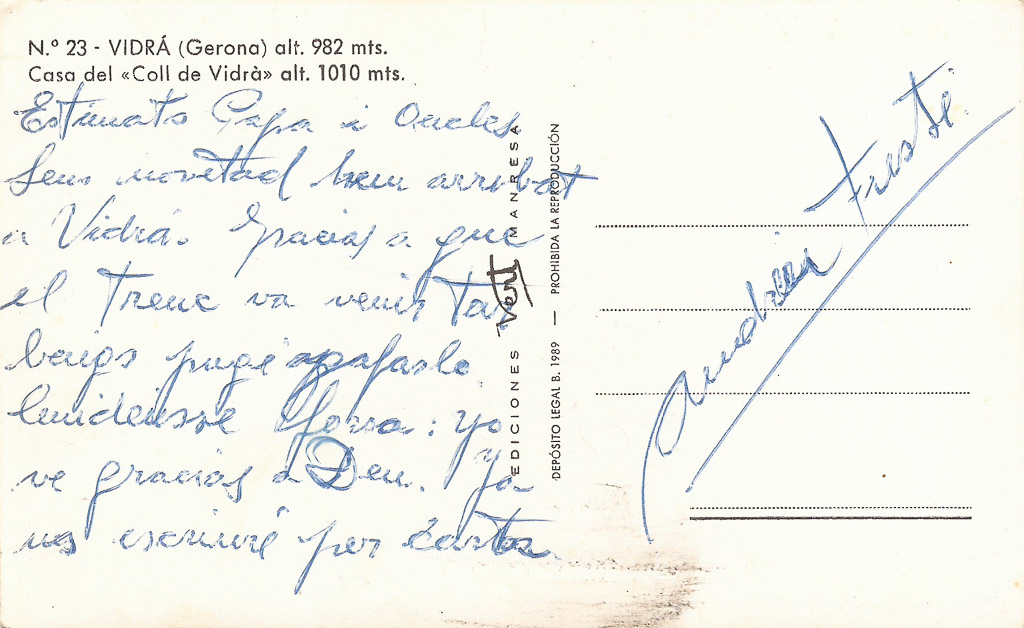 N.º 23 - VIDRÁ (Gerona) alt. 982 mts.
Casa del «Coll de Vidrà» alt. 1010 mts.
Estimats Papa i Oncles
Sens novetad hem arribat
a Vidrá. Gracias a que
el Trenc va venir Tar
baigs pugé agafarlo
Yo
ve gracias a Deu. Ya
us escriuré per carta
EDICIONES Vert MANRESA
DEPÓSITO LEGAL B. 1989 — PROHIBIDA LA REPRODUCCIÓN